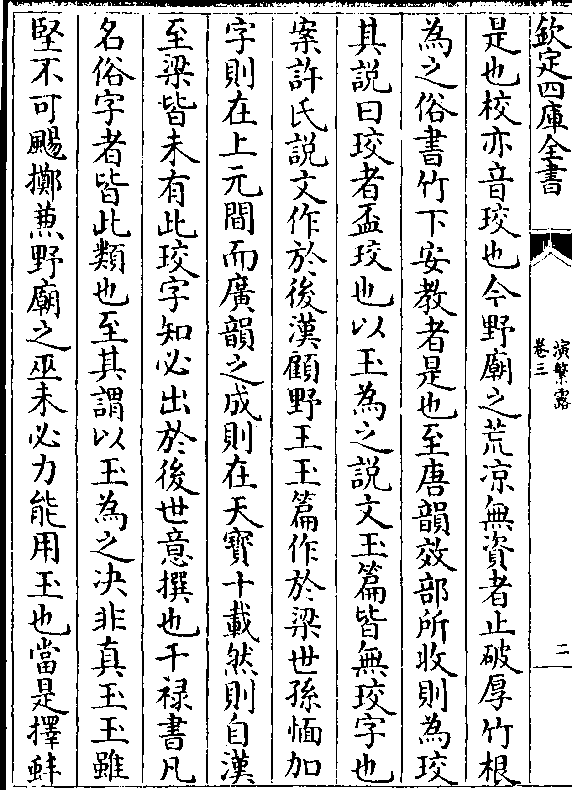 欽定四庫全書
演繁露
卷三
二
是也校亦音珓也今野廟之荒凉無資者止破厚竹根
為之俗書竹下安教者是也至唐韻效部所收則為珓
其說曰珓者盃珓也以玉為之說文玉篇皆無珓字也
案許氏說文作於後漢顧野王玉篇作於梁世孫愐加
字則在上元間而廣韻之成則在天寶十載然則自漢
至梁皆未有此珓字知必出於後世意撰也干祿書凡
名俗字者皆此類也至其謂以玉為之决非真玉玉雖
堅不可颺擲兼野廟之巫未必力能用玉也當是擇蚌